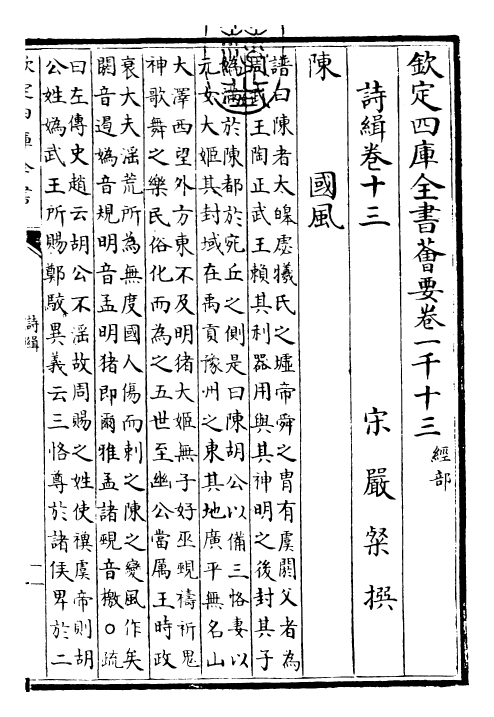 欽定四庫全書薈要卷一千十三 經部
詩緝卷十三
宋 嚴粲 撰
陳 國風
譜曰陳者大皥虙犧氏之墟帝舜之胄有虞閼父者為
周武王陶正武王賴其利器用與其神明之後封其子
媯滿於陳都於宛丘之側是曰陳胡公以備三恪妻以
元女大姬其封域在禹貢豫州之東其地廣平無名山
大澤西望外方東不及明豬大姬無子好巫覡禱祈鬼
神歌舞之樂民俗化而為之五世至幽公當厲王時政
衰大夫淫荒所為無度國人傷而刺之陳之變風作矣
閼音遏媯音規明音孟明猪即爾雅孟諸覡音檄○疏
曰左傳史趙云胡公不淫故周賜之姓使禩虞帝則胡
公姓媯武王所賜鄭駮異義云三恪尊於諸侯卑於二
欽定四庫全書
詩緝
一